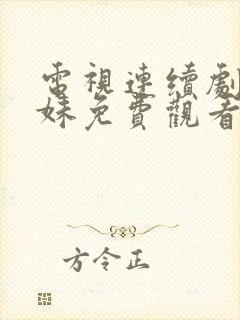 電視連續劇
妹免費觀看
方令正